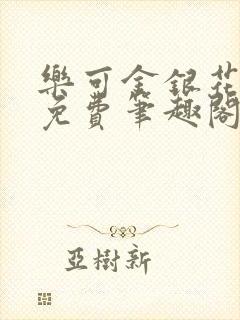 樂可金銀花
免費筆趣閣
亞樹新